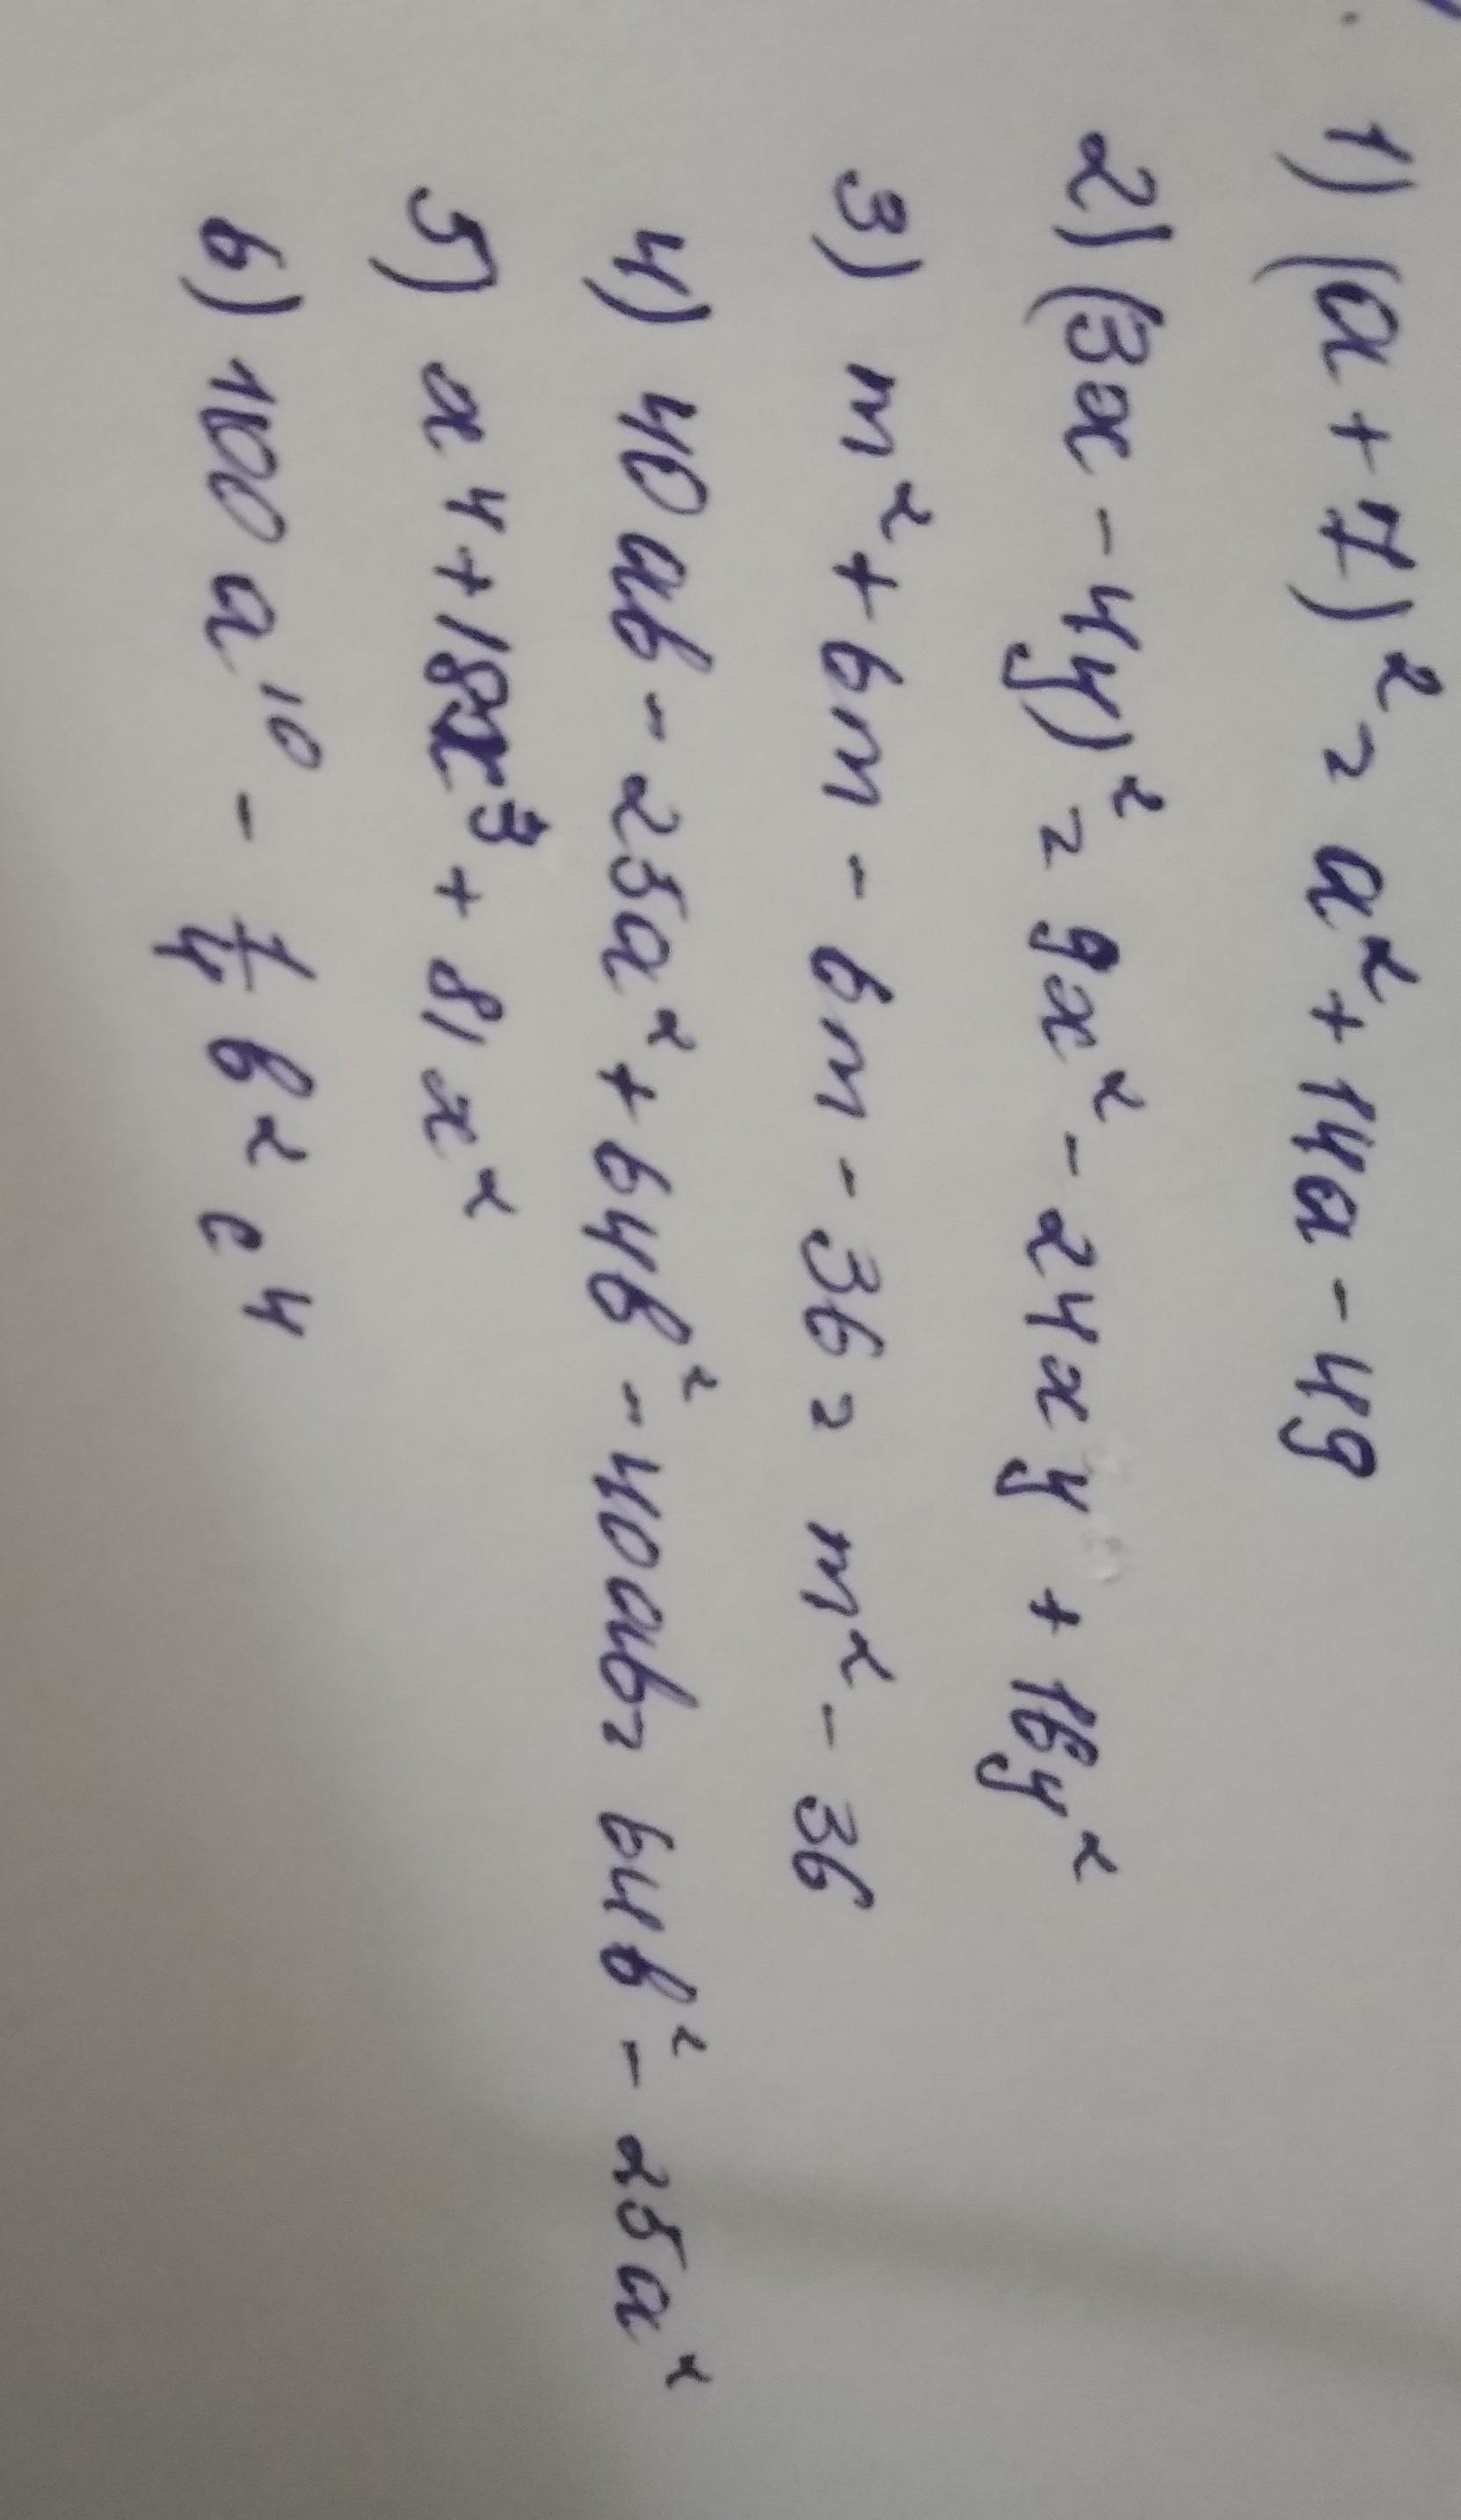 1) (a + 7)² = a² + 14a - 49
2) (3x - 4y)² = 9x² - 24xy + 16y²
3) m² + 6m - 6m - 36 = m² - 36
4) 40ab - 25a² + 64b² - 40ab = 64b² - 25a²
5) x⁴ + 18x³ + 81x²
6) 100a¹⁰ - 1/4 b²c⁴